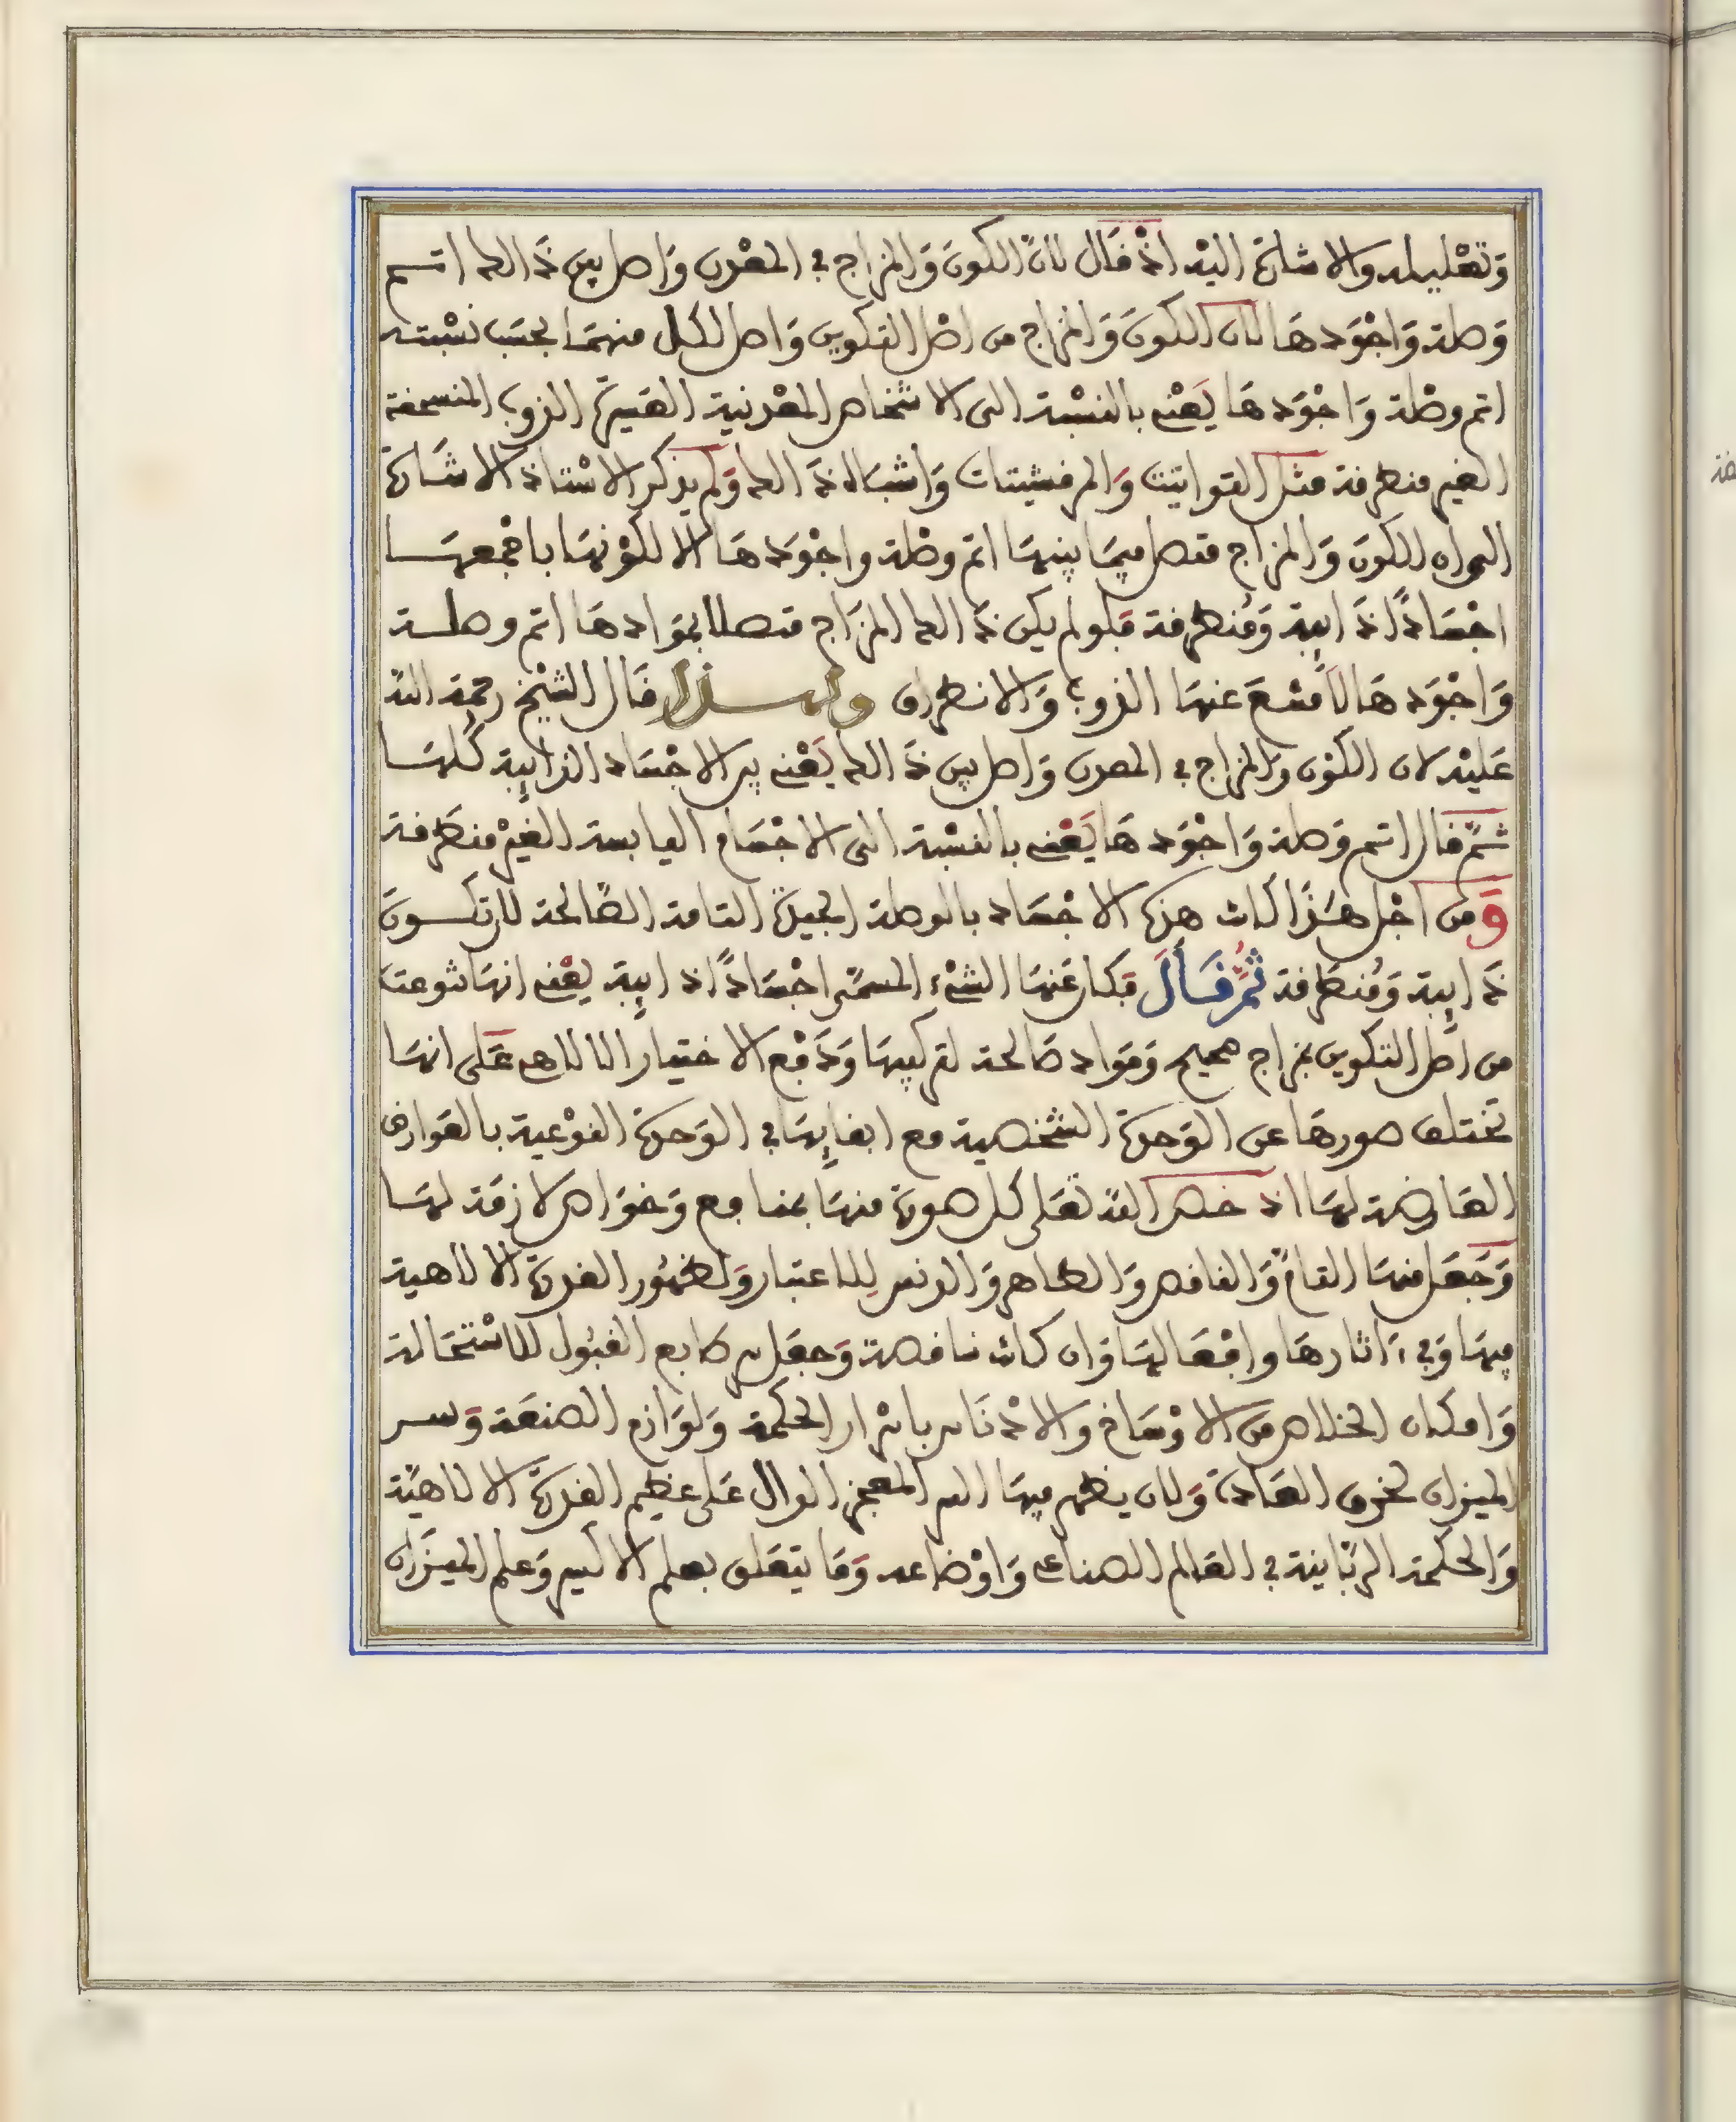 وتعليله والاشارة اليه اذ قال لان الكون والمزاج في المعدن واصل بين ذالك اتم
وصلة واجودها لان الكون والمزاج من اصل التكوين واصل لكل منهما بحسب نسبته
اتم وصلة واجودها يعني بالنسبة الى الاشخاص المعدنية الغير الذوب المنسحقة
الغير منطرقة مثل التواتيت والمرقشيتات واشباه ذالك ولم يذكر الاستاذ الاشارة
الى ان الكون والمزاج متصل فيما بينها اتم وصلة واجودها الا لكونها باجمعها
اجسادًا ذايبة ومنطرقة فلو لم يكن ذالك المزاج متصلا بموادها اتم وصلة
واجودها لامتنع عنها الذوب والانطراق ولهذا قال الشيخ رحمة الله
عليه لان الكون والمزاج في المعدن واصل بين ذالك يعني بين الاجساد الذايبة كلها
ثم قال اتم وصلة واجودها يعني بالنسبة الى الاجسام اليابسة الغير منطرقة
ومن اجل هذا كانت هذه الاجساد بالوصلة الجيدة التامة الصالحة لان تكون
ذايبة ومنطرقة ثم قال فكان عنها الشيء المسمى اجسادًا ذايبة يعني انها تنوعت
من اصل التكوين بمزاج صحيح ومواد صالحة لتركيبها ودفع الاختيار الالاهي على انها
تختلف صورها عن الوحدة الشخصية مع ابقايها في الوحدة النوعية بالعوارض
العارضة لها اذ خص الله تعلى كل صورة منها بمنافع وخواص لازمة لها
وجعل منها التام والناقص والطاهر والدنس للاعتبار ولظهور القدرة الالاهية
فيها وفي ءاثارها وافعالها وان كانت ناقصة وجعل في طابع القبول للاستحالة
وامكان الخلاص من الاوساخ والادناس باسرار الحكمة ولوازم الصنعة وسر
الميزان لخرق العادة ولان يظهر فيها السر المعجز الدال على عظيم القدرة الالاهية
والحكمة الربانية في العالم الصناعي واوضاعه وما يتعلق بعلم الاكسير وعلم الميزان